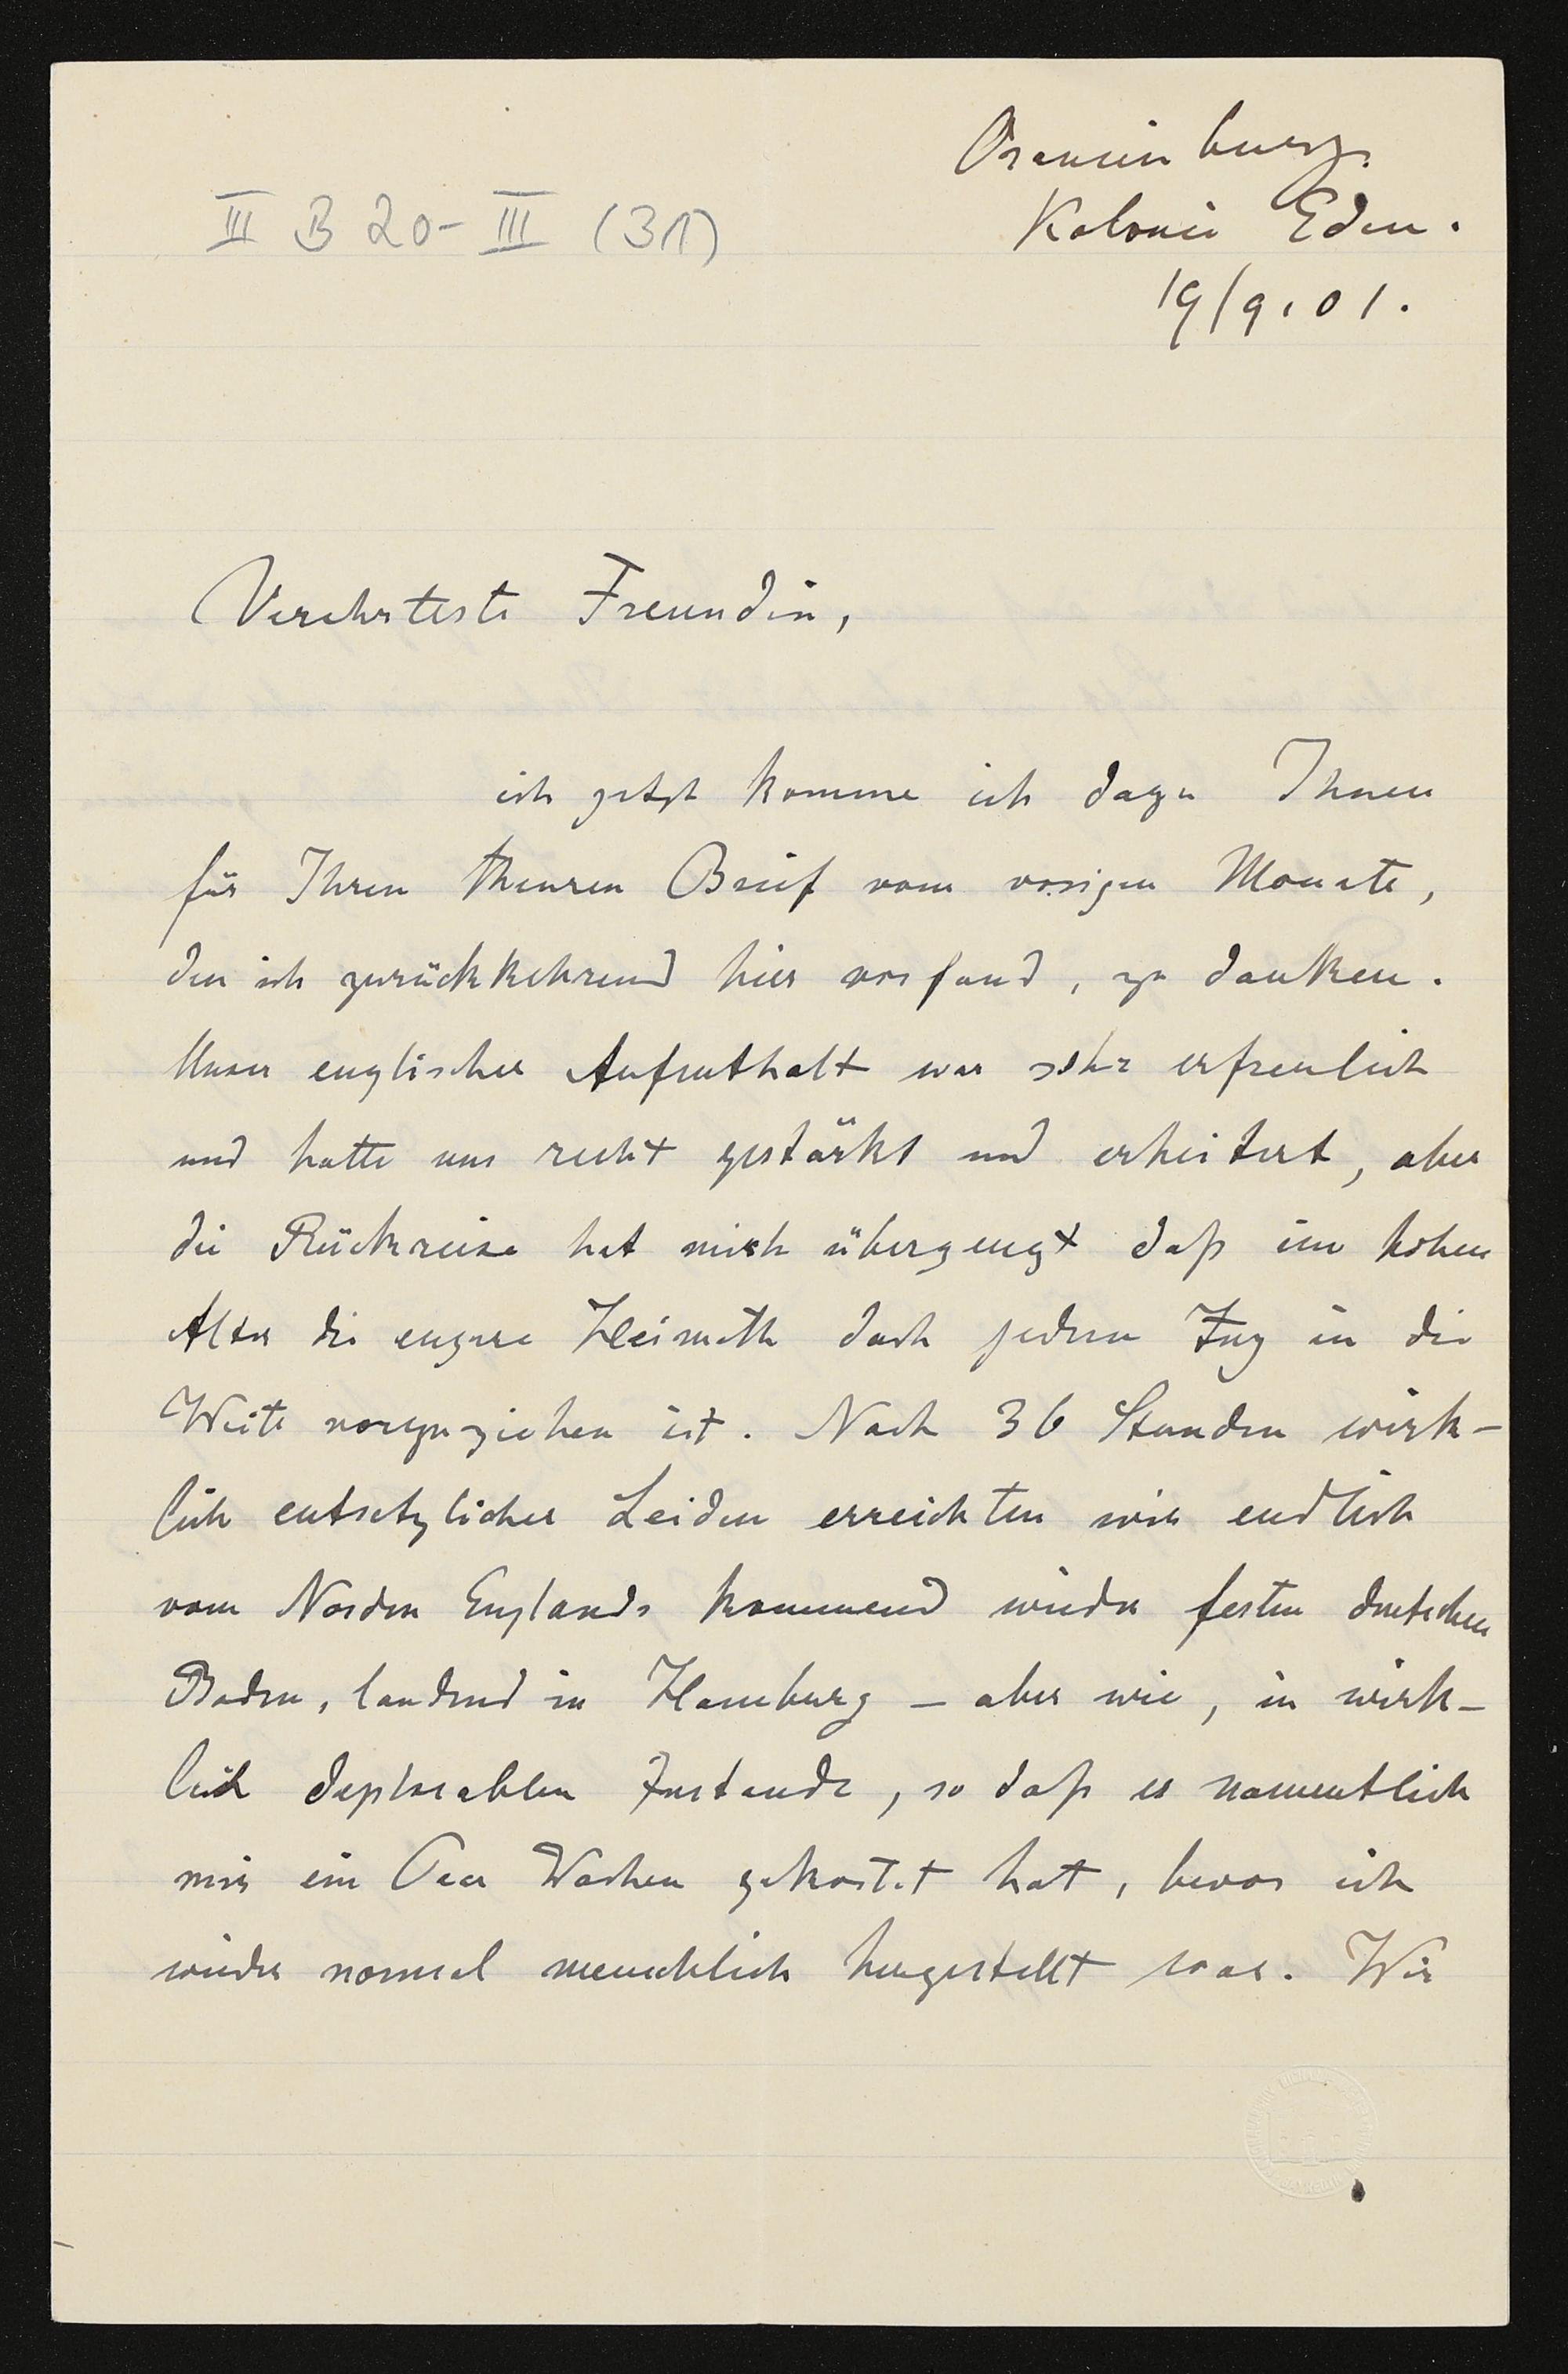 Oranienburg.
III B 20-III (31)
Kolonie Eden.
19/9.01.
Verehrteste Freundin,
ich jetzt komme ich dazu Ihnen
für Ihren theuren Brief vom vorigen Monate,
den ich zurückkehrend hier vorfand, zu danken.
Unser englischer Aufenthalt war sehr erfreulich
und hatte uns recht gestärkt und erheitert, aber
die Rückreise hat mich überzeugt daß im hohen
Alter die engere Heimath doch jedem Zug in die
Weite vorzuziehen ist. Nach 36 Stunden wirk-
lich entsetzlicher Leiden erreichten wir endlich
vom Norden Englands kommend wieder festen deutschen
Boden, landend in Hamburg – aber wie, in wirk-
lich deplorablen Zustande, so daß es namentlich
mir ein Paar Wochen gekostet hat, bevor ich
wieder normal menschlich hergestellt war. Wir